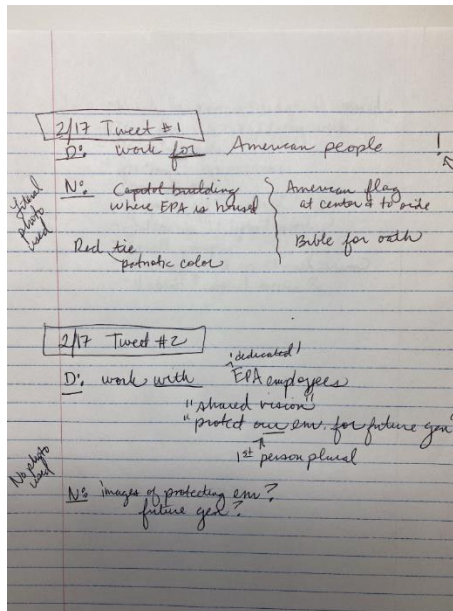 2/17 Tweet #1
D: work for American people !
Literal photo used
N: Capitol building
where EPA is housed
American flag
at center & to side
Bible for oath
Red tie
patriotic color
2/17 Tweet #2
'dedicated'
D: work with EPA employees
"shared vision"
"protect our env. for future gen"
1st person plural
No photo used
N: images of protecting env?
future gen?